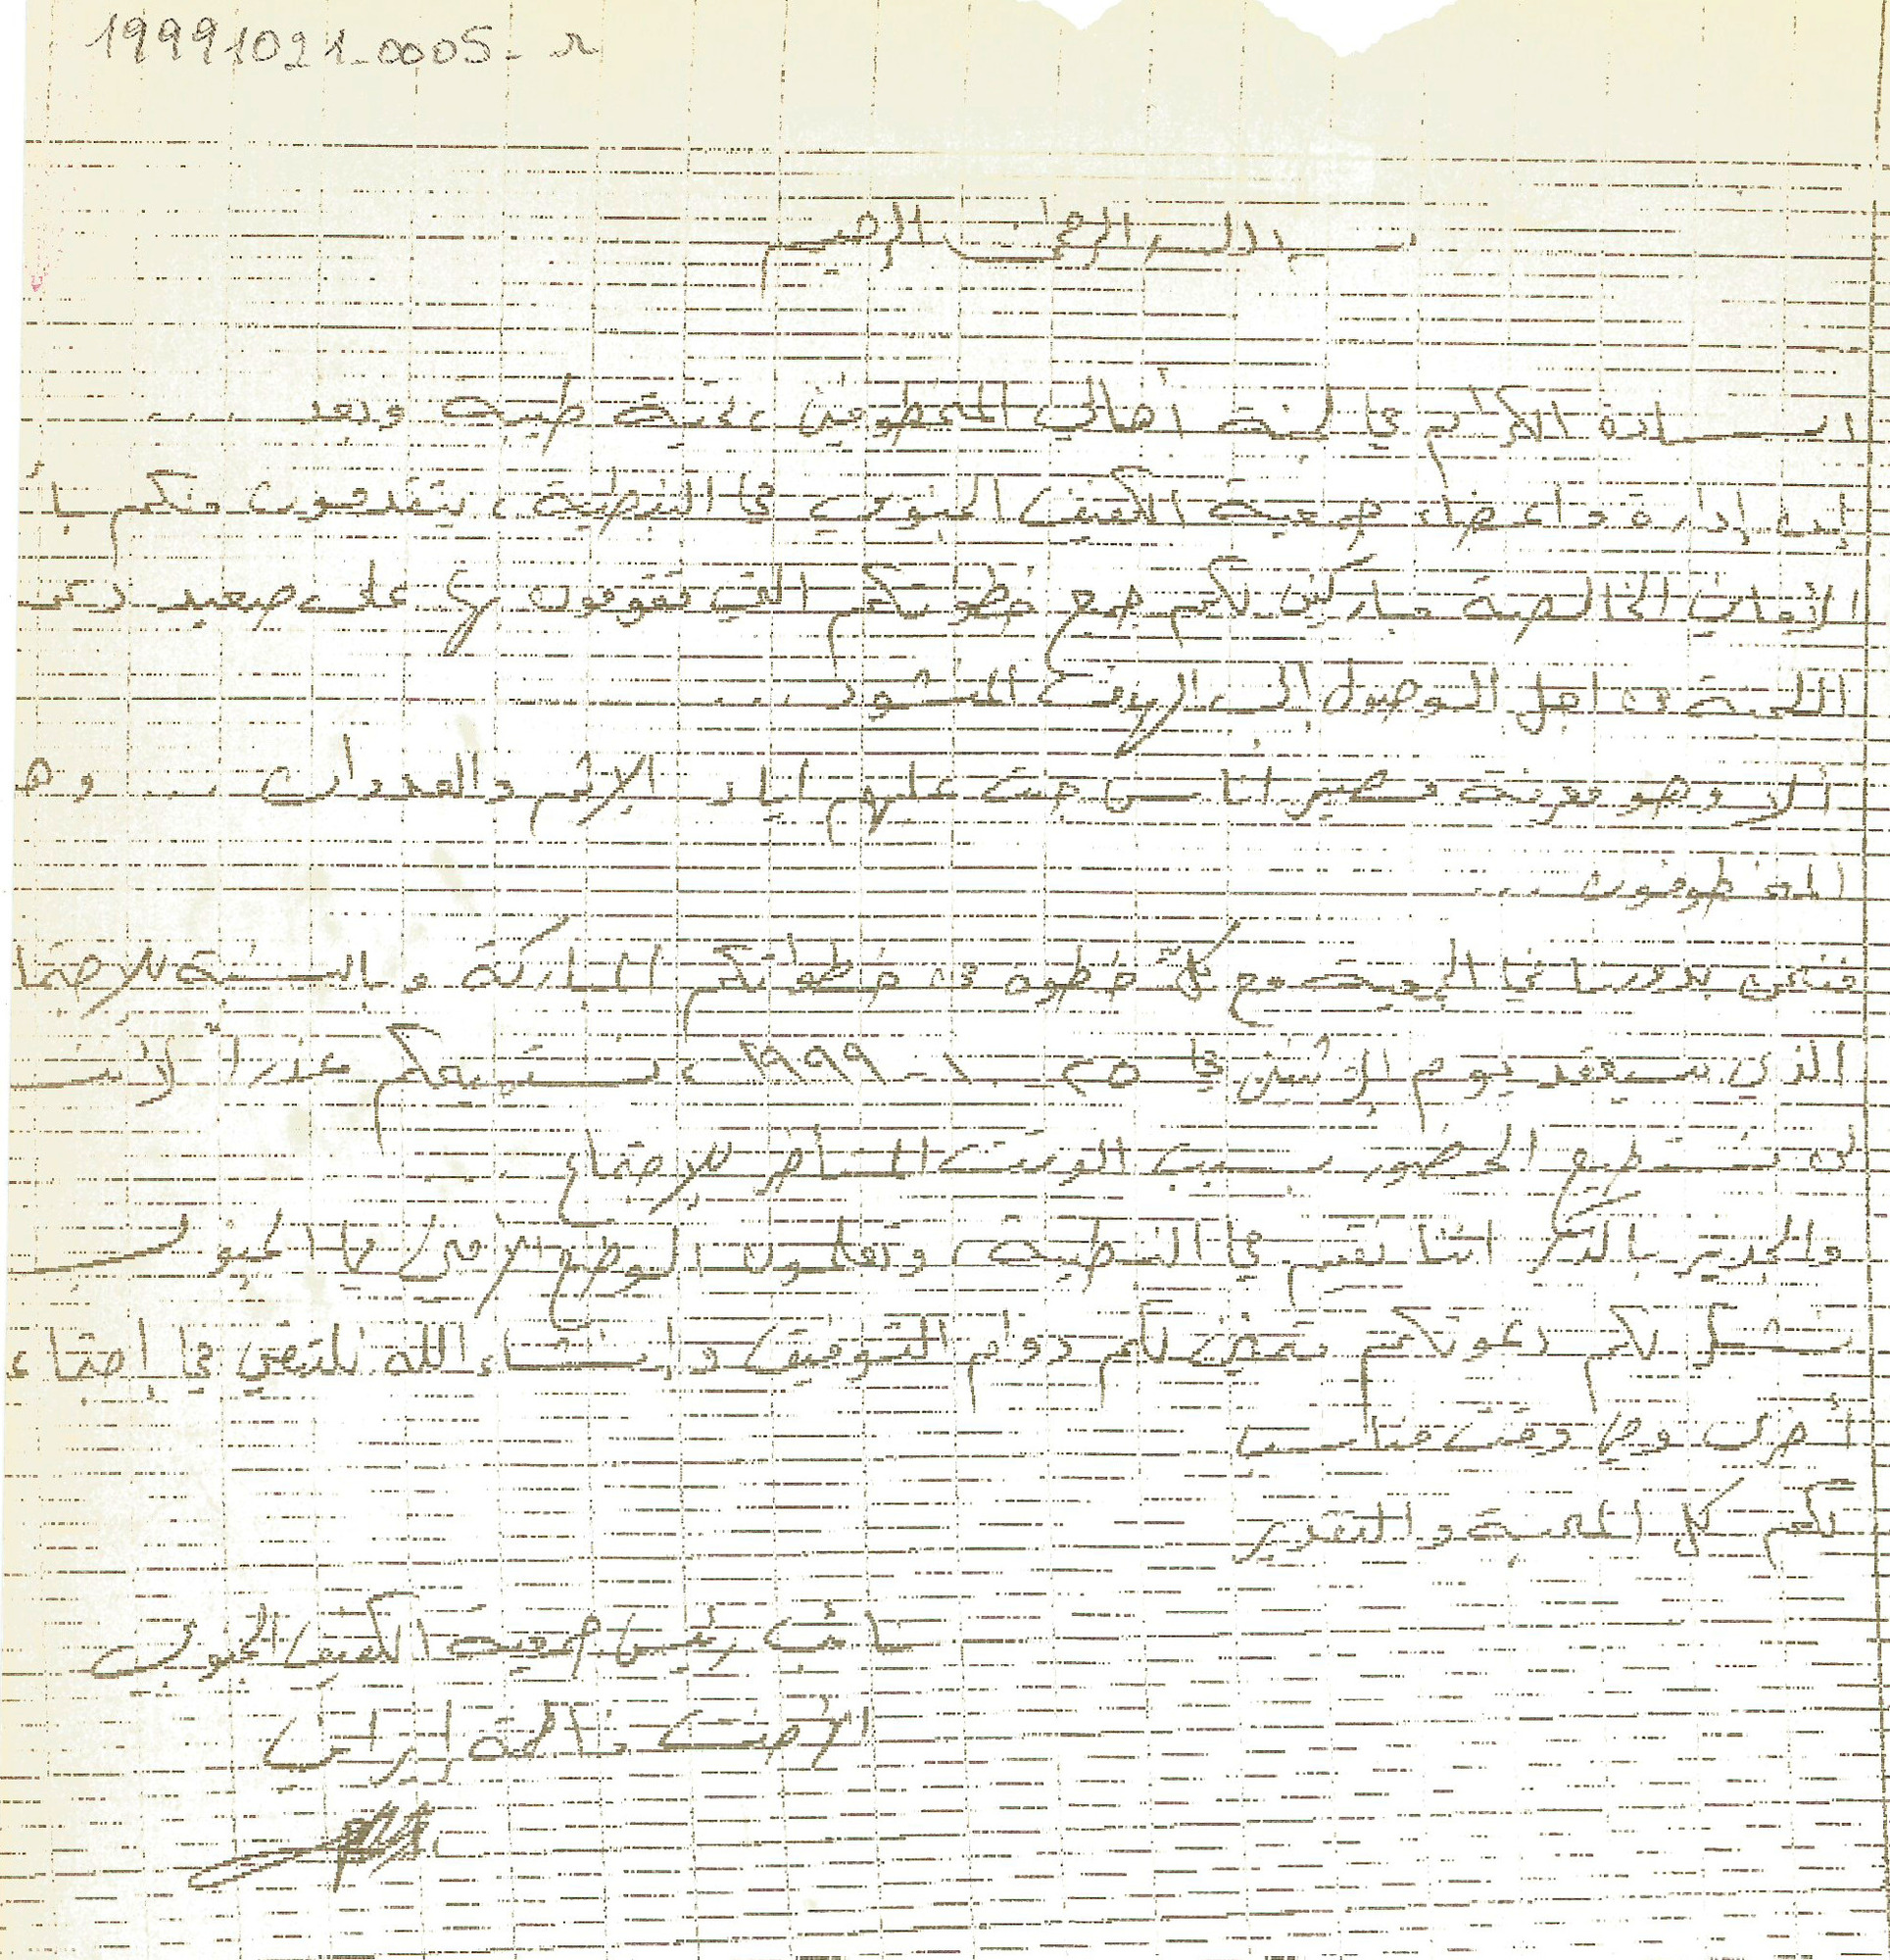 19991021-0005-r
بسم الله الرحمن الرحيم
السادة الاكرام في لجنة أهالي المخطوفين تحية طيبة وبعد ...
إن إدارة واعضاء جمعية الكفيف الجنوبي في النبطية، يتقدمون منكم بأ
الأمنيات الخالصة مباركين لكم جميع خطوتكم التي تقومون بها على صعيد دعم
اللجنة من اجل الوصول إلى الهدف المنشود ..
ألا وهو معرفة مصير اناس جنت عليهم أياد الإثم والعدوان ... وهم
المخطوفون ...
فنحن بدورنا في الجمعية مع كل خطوه من خطواتكم المباركة وبالنسبة للإجتما
الذي سيعقد يوم الإثنين في ٢٥ - ١٠ - ١٩٩٩، نستميحكم عذراً لأننا
لن نستطيع الحضور بسبب الوقت المتأخر للإجتماع .
والجدير بالذكر اننا نقيم في النبطية وتعلمون الوضع الأمني في الجنوب
نشكر لكم دعوتكم متمنين لكم دوام التوفيق وإنشاء الله نلتقي في إجتماع
أخرى وفي وقت مناسب
لكم كل المحبة والتقدير
نائب رئيس جمعية الكفيف الجنوبي
الأخت